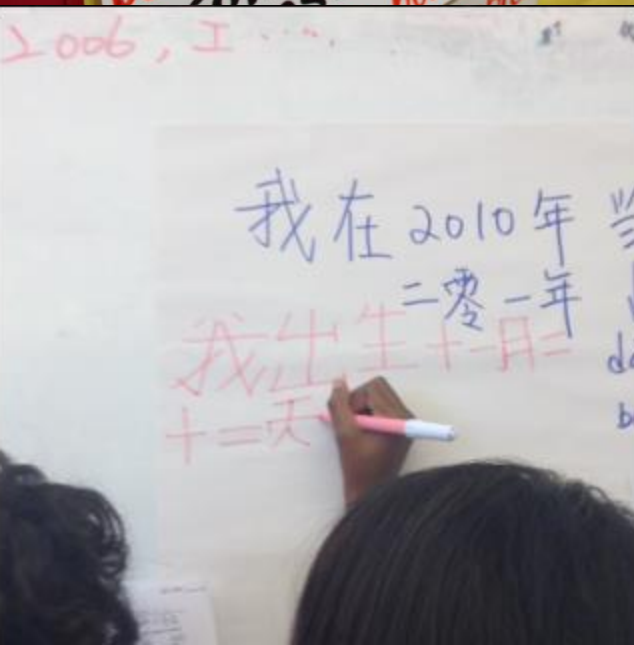 2006, I .....
我在2010年
二零一年
我出生十一月二
十二天